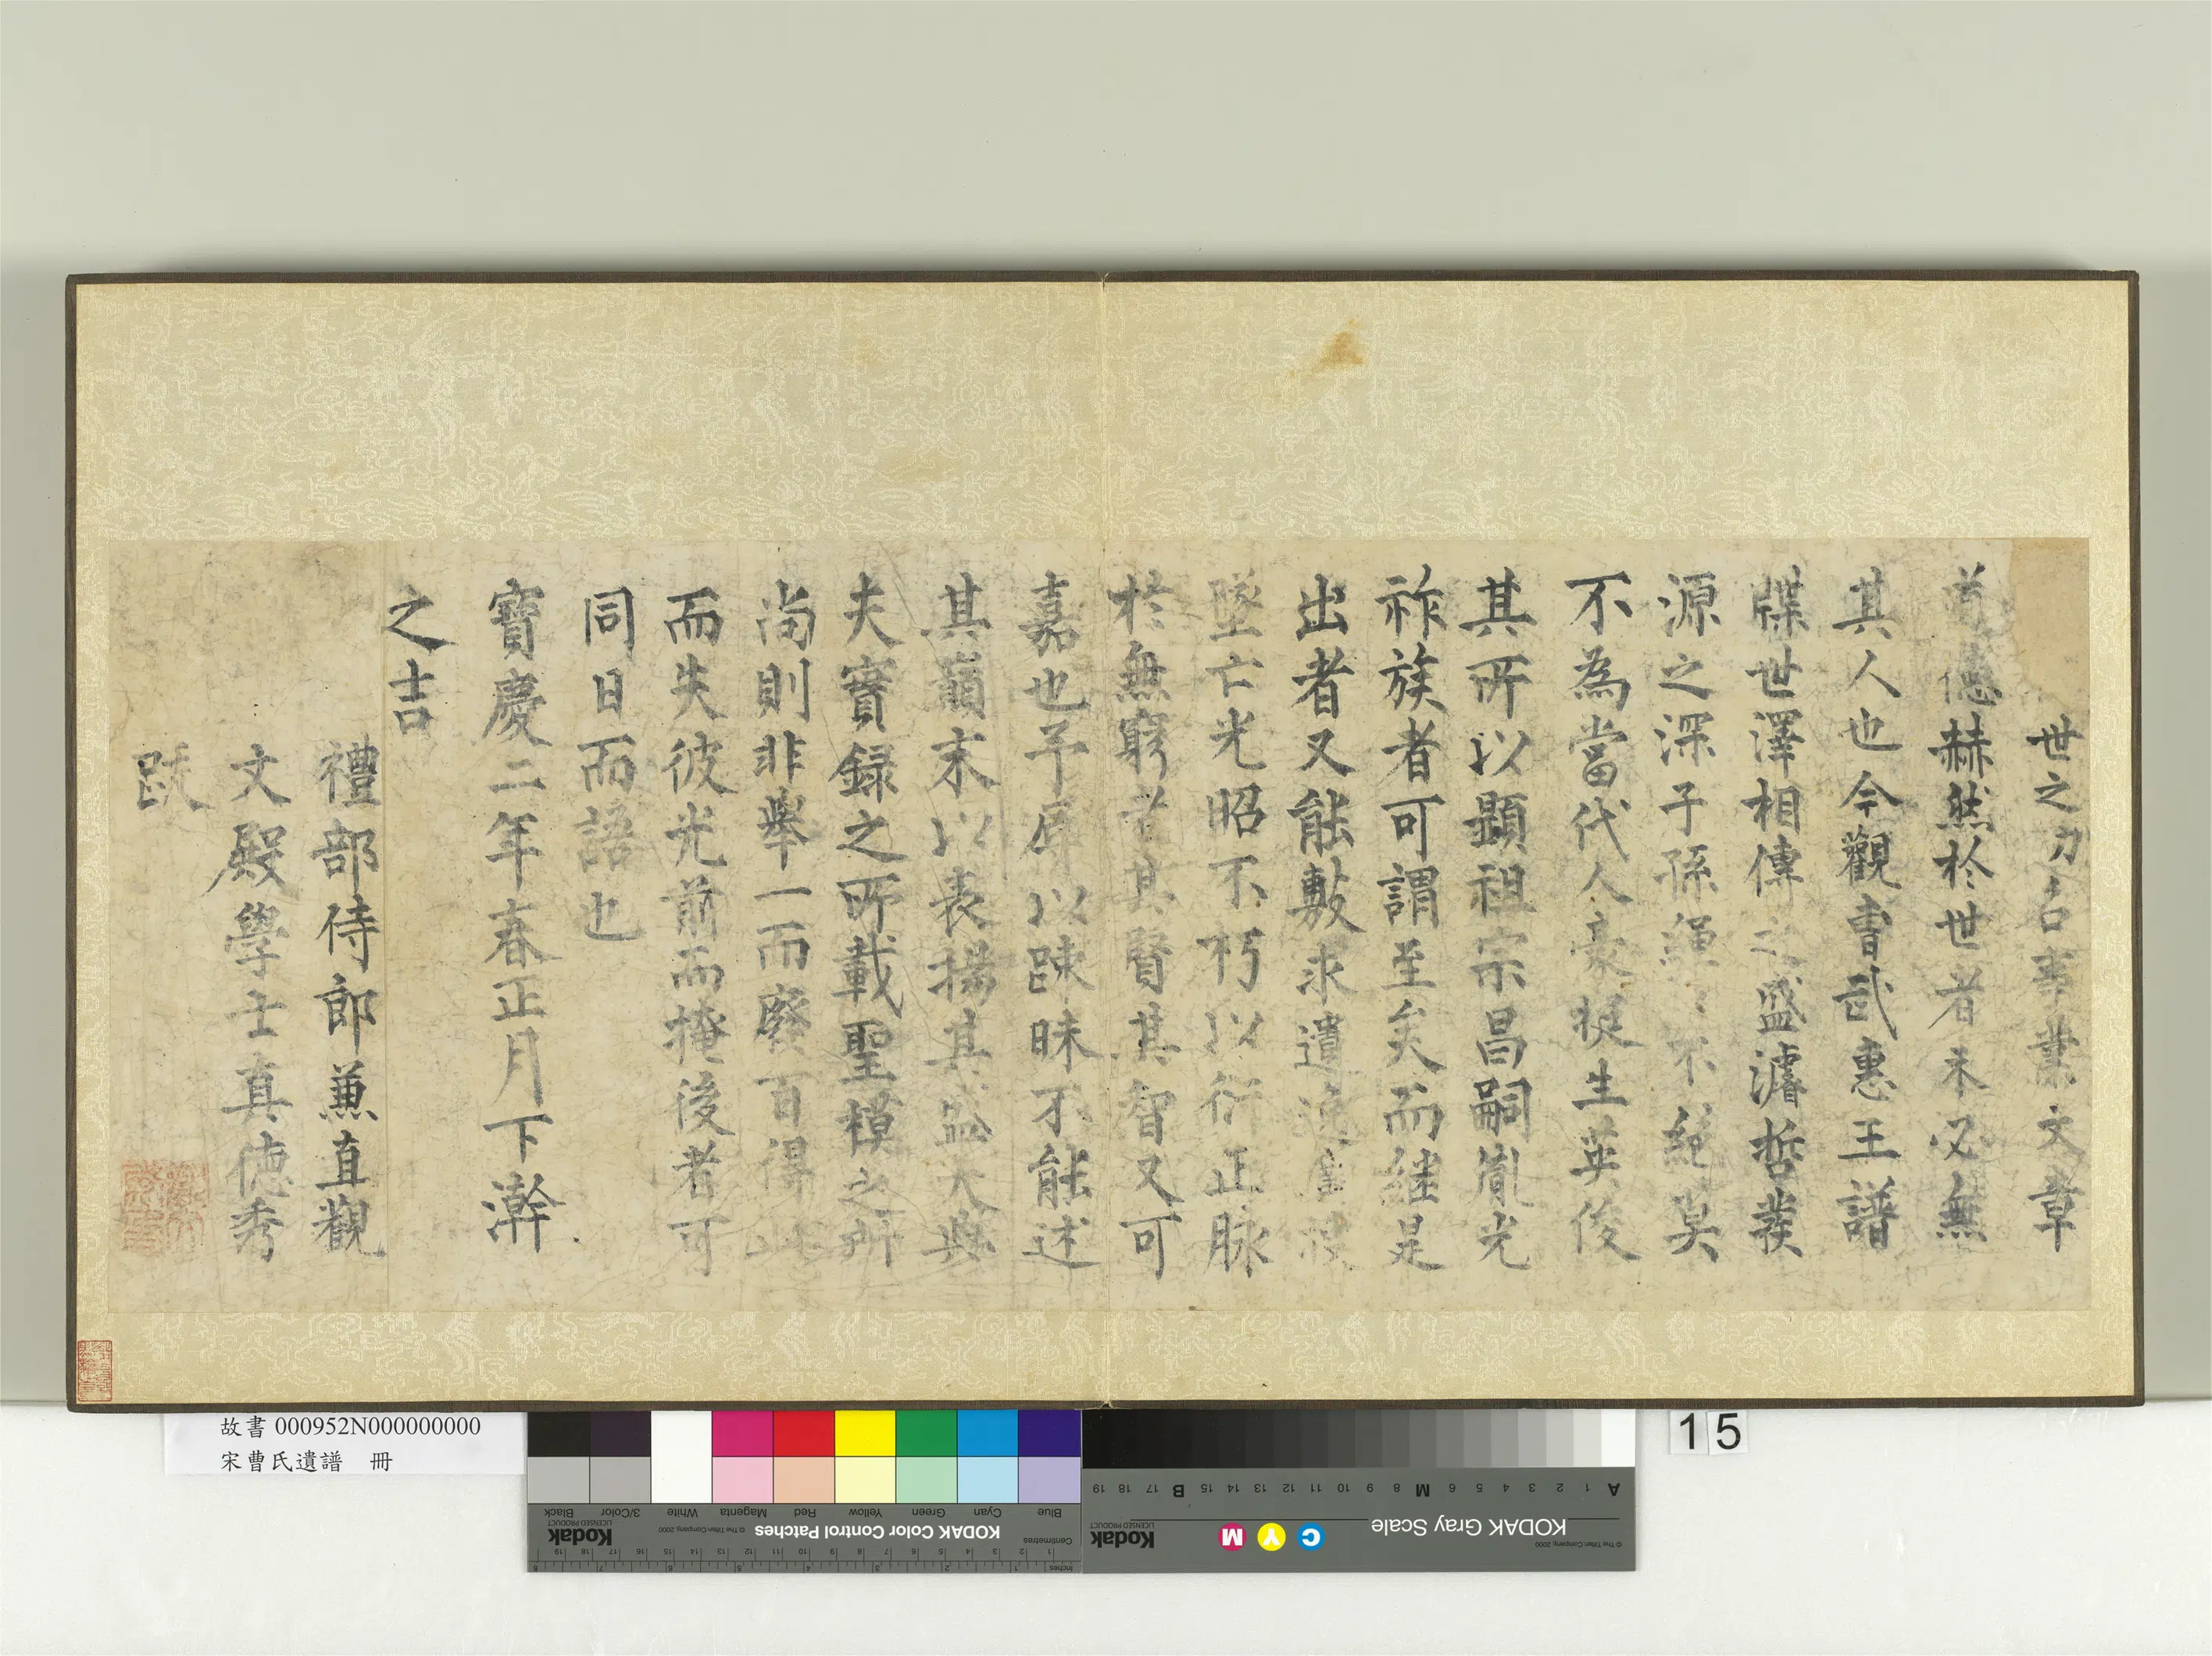 世之功名事業文章
道德赫然於世者未必無
其人也今觀曹武惠王譜
牒世澤相傳之盛濬哲發
源之深子孫繩〻不絕莫
不為當代人豪挺生英俊
其所以顯祖宗昌嗣胤光
祚族者可謂至矣而継是
出者又能敷求遺
墜亡光昭不朽以衍正脉
於無窮者其賢其智又可
嘉也予辱以踈昧不能述
其巔末以表揚其盛大與
夫實録之所載聖模之所
尚則非舉一而廢百得此
而失彼光前而掩後者可
同日而語也
寶慶二年春正月下澣
之吉
禮部侍郎兼直觀
文殿學士真德秀
跋
故書 000952N000000000
宋曹氏遺譜 冊
15
KODAK Color Control Patches
Kodak
LICENSED PRODUCT
© The Tiffen Company, 2000
Centimetres
Inches
Blue Cyan Green Yellow Red Magenta White 3/Color Black
KODAK Gray Scale
C Y M
Kodak
LICENSED PRODUCT
© The Tiffen Company, 2000
A 1 2 3 4 5 6 M 8 9 10 11 12 13 14 15 B 17 18 19